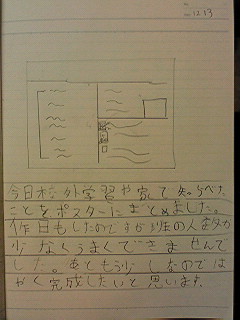 12 13
今日校外学習や家で知らべた
ことをポスターにまとめました。
作日もしたのですが班の人数が
少なくうまくできませんで
した。あともう少しなのでは
やく完成したいと思います。